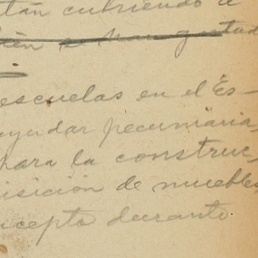 tán cubriendo a
escuelas en el Es-
ayudar pecuniaria-
para la construc-
isición de muebles
ncepto durante